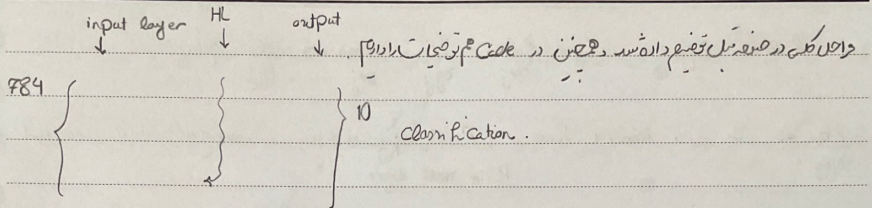 input layer HL output
مراحل کلی در صفحه قبل توضیح داده شد و همچنین در Code هم توضیحات را دادم.
784
10
Classification.